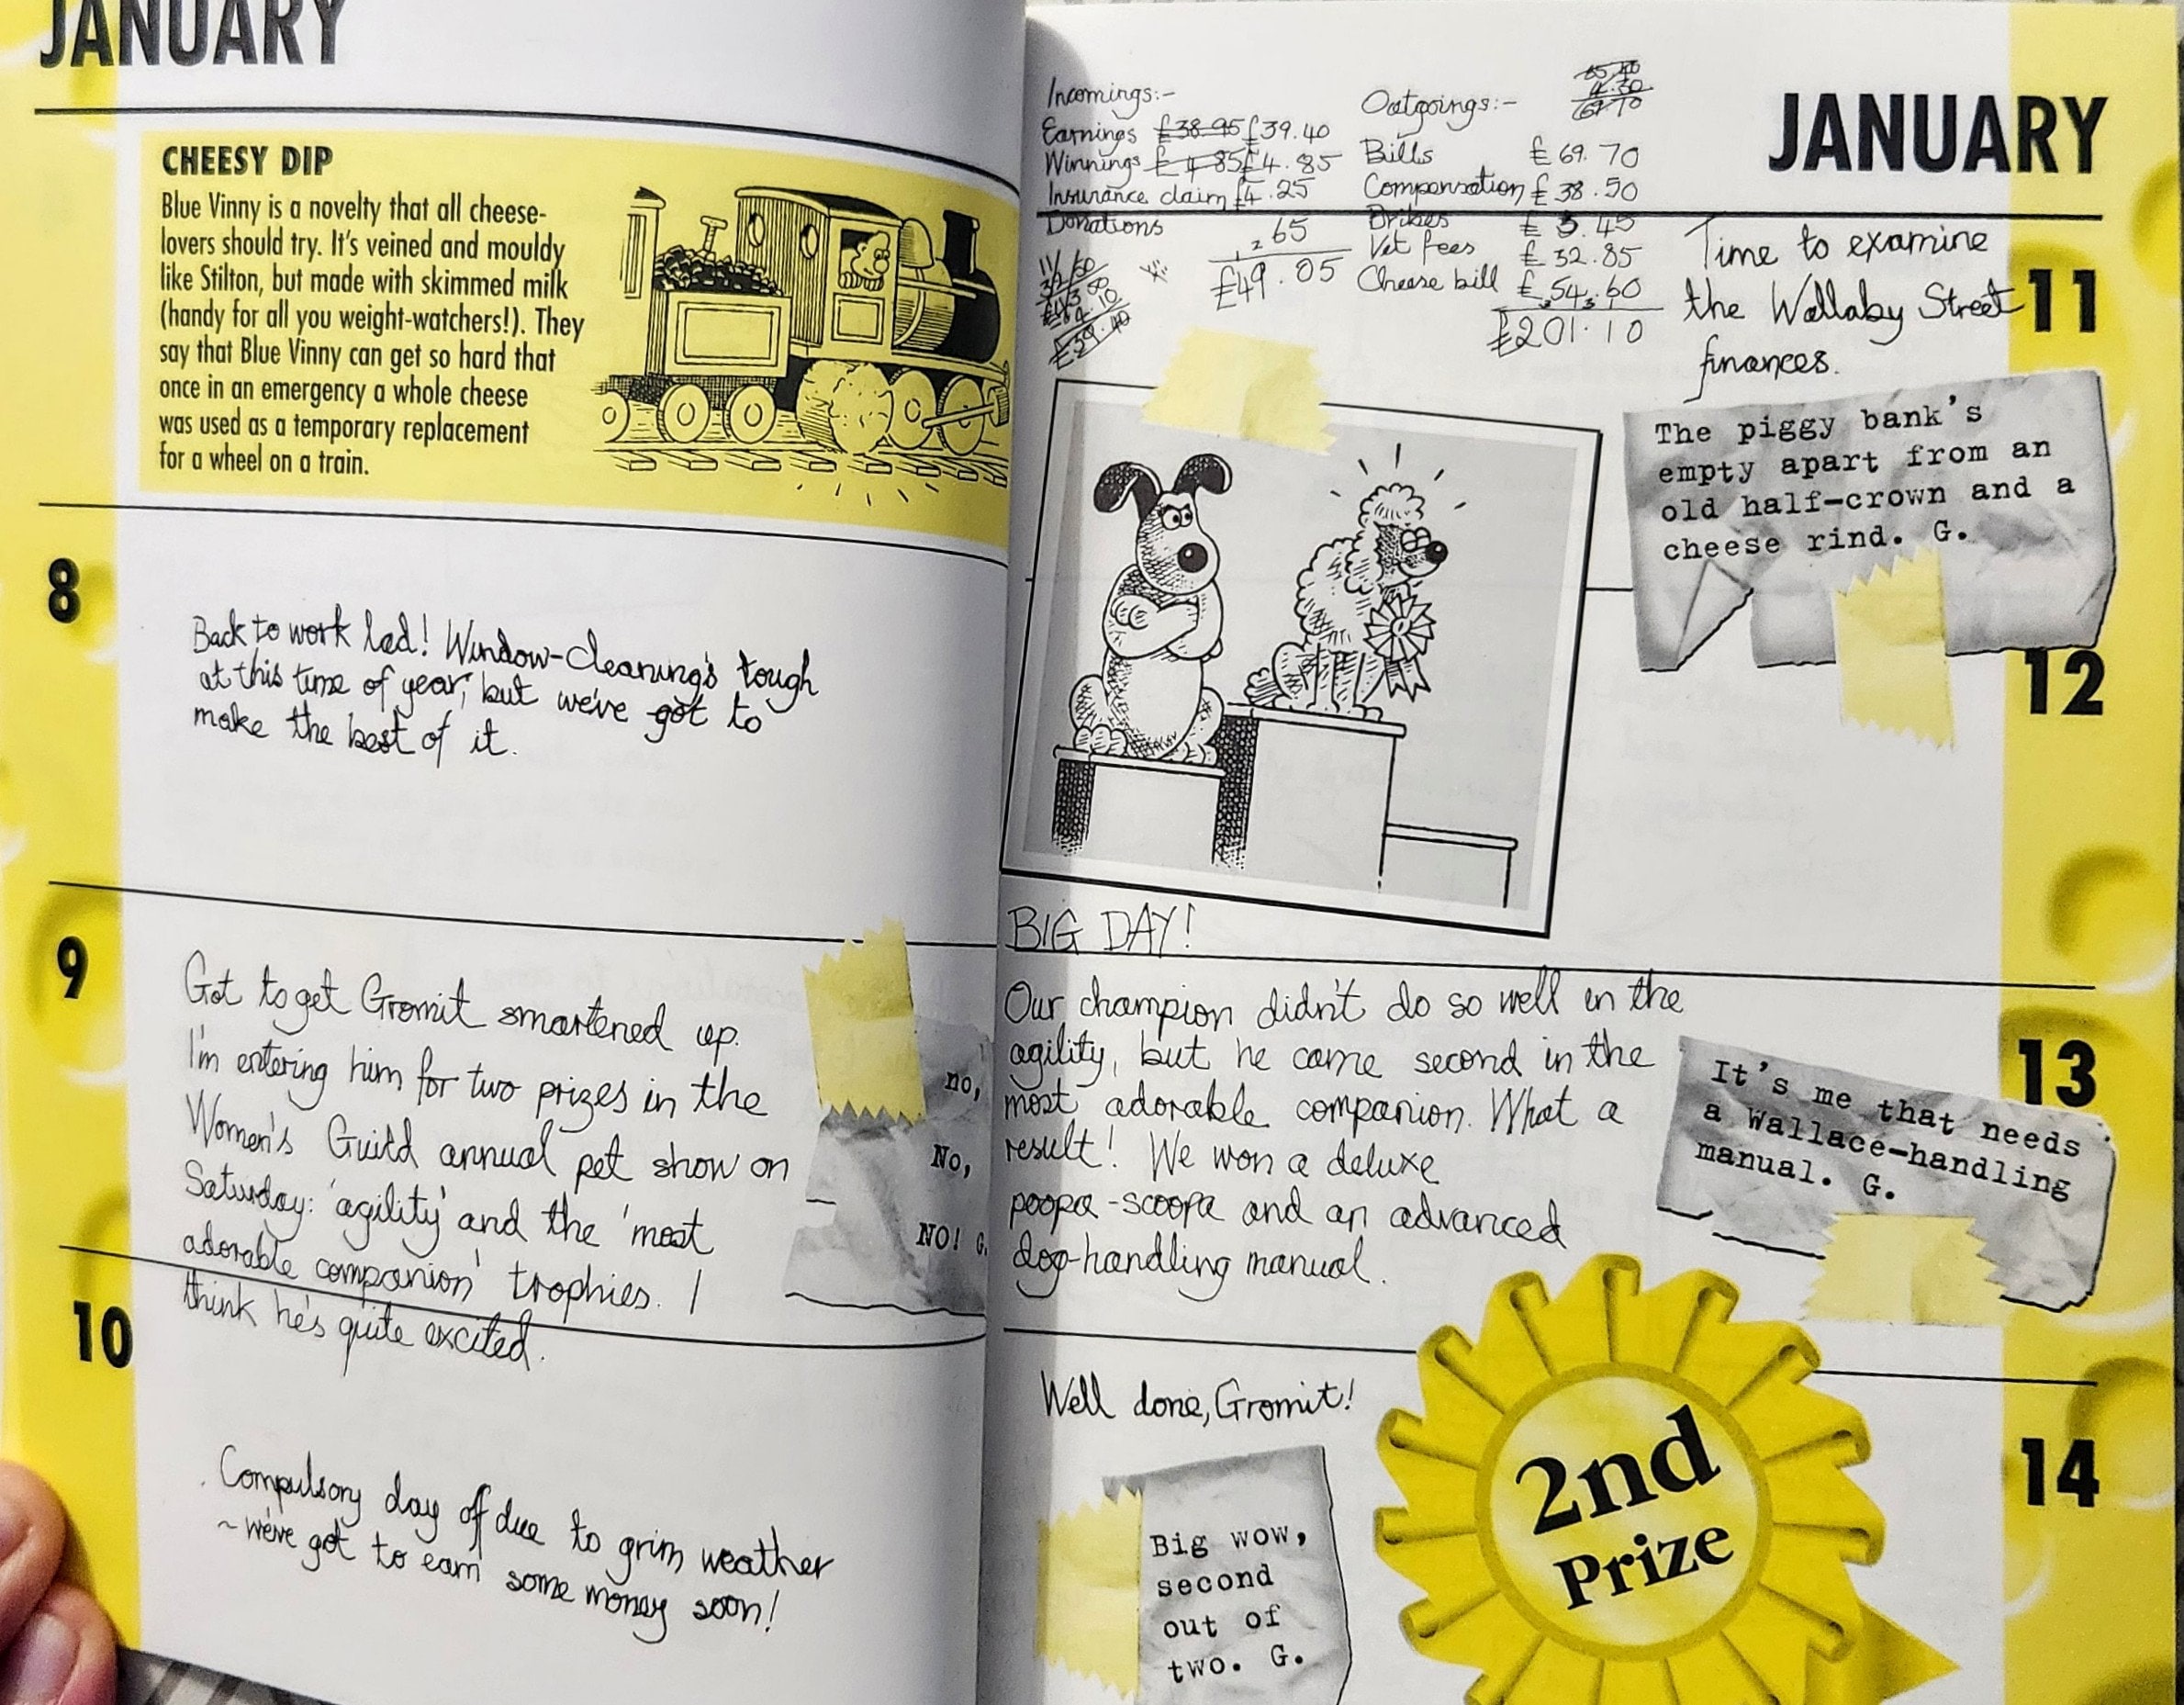 JANUARY
CHEESY DIP
Blue Vinny is a novelty that all cheese-
lovers should try. It's veined and mouldy
like Stilton, but made with skimmed milk
(handy for all you weight-watchers!). They
say that Blue Vinny can get so hard that
once in an emergency a whole cheese
was used as a temporary replacement
for a wheel on a train.
8
Back to work lad! Window-cleaning's tough
at this time of year, but we've got to
make the best of it.
9
Got to get Gromit smartened up.
I'm entering him for two prizes in the
Women's Guild annual pet show on
Saturday: 'agility' and the 'most
adorable companion' trophies. I
think he's quite excited.
no,
No,
NO! G.
10
Compulsory day off due to grim weather
~ we've got to earn some money soon!
JANUARY
Incomings:-
Earnings £38.95 £39.40
Winnings £4.85 £4.85
Insurance claim £4.25
Donations
65
£49.05
£39.40
Outgoings:-
Bills £69.70
Compensation £38.50
£5.45
Vet fees £32.85
Cheese bill £54.60
£201.10
11
Time to examine
the Wallaby Street
finances.
The piggy bank's
empty apart from an
old half-crown and a
cheese rind. G.
12
BIG DAY!
13
Our champion didn't do so well in the
agility, but he came second in the
most adorable companion. What a
result! We won a deluxe
poopa-scoopa and an advanced
dog-handling manual.
It's me that needs
a Wallace-handling
manual. G.
14
Well done, Gromit!
Big wow,
second
out of
two. G.
2nd
Prize